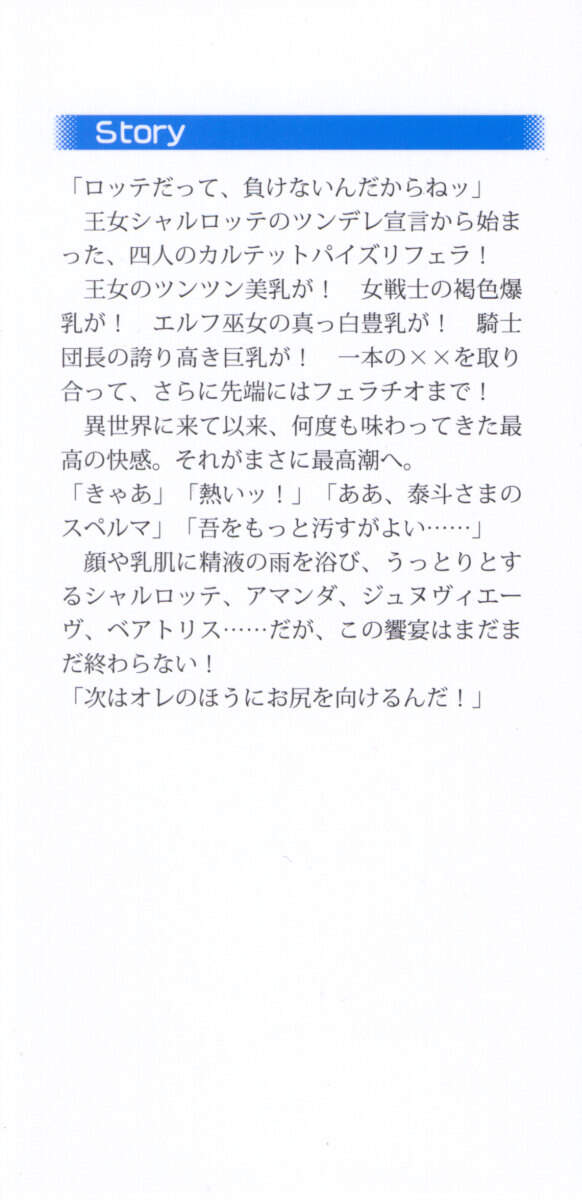 Story
「ロッテだって、負けないんだからねッ」
　王女シャルロッテのツンデレ宣言から始ま
った、四人のカルテットパイズリフェラ！
　王女のツンツン美乳が！　女戦士の褐色爆
乳が！　エルフ巫女の真っ白豊乳が！　騎士
団長の誇り高き巨乳が！　一本の××を取り
合って、さらに先端にはフェラチオまで！
　異世界に来て以来、何度も味わってきた最
高の快感。それがまさに最高潮へ。
「きゃあ」「熱いッ！」「ああ、泰斗さまの
スペルマ」「吾をもっと汚すがよい……」
　顔や乳肌に精液の雨を浴び、うっとりとす
るシャルロッテ、アマンダ、ジュヌヴィエー
ヴ、ベアトリス……だが、この饗宴はまだま
だ終わらない！
「次はオレのほうにお尻を向けるんだ！」